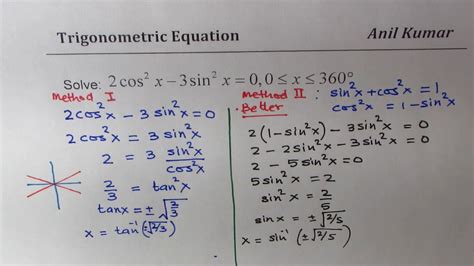 Trigonometric Equation Anil Kumar
Solve: 2cos²x − 3sin²x = 0, 0 ≤ x ≤ 360°
Method I
2cos²x − 3sin²x = 0
2cos²x = 3sin²x
2 = 3 sin²x/cos²x
2/3 = tan²x
tanx = ±√(2/3)
x = tan⁻¹(±√2/3)
Method II : sin²x + cos²x = 1
Better cos²x = 1 − sin²x
2(1 − sin²x) − 3sin²x = 0
2 − 2sin²x − 3sin²x = 0
2 − 5sin²x = 0
5sin²x = 2
sin²x = 2/5
sinx = ±√2/5
x = sin⁻¹(±√2/5)